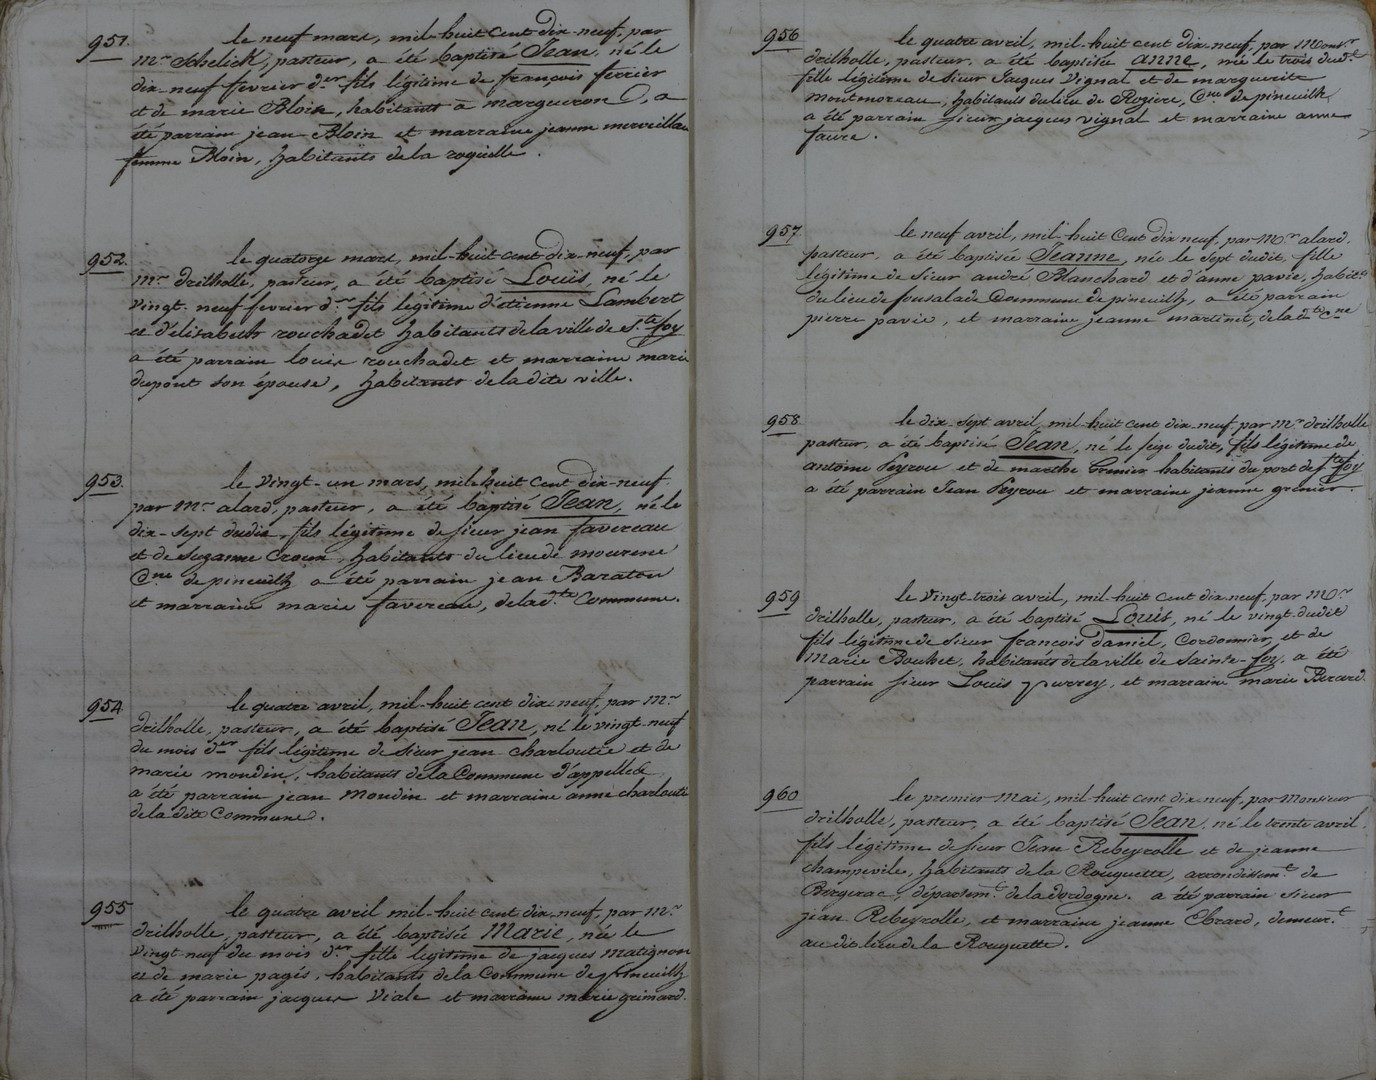 951. le neuf mars, mil-huit cent dix-neuf, par
mr Schelick, pasteur, a été baptisé Jean, né le
dix-neuf fevrier der fils légitime de françois ferrier
et de marie Bloin, habitants a margueron, a
été parrain jean Bloin et marraine jeanne merveilleau
femme Bloin, habitants de la roquille.
952. le quatorze mars, mil-huit cent dix-neuf, par
mr drilholle, pasteur, a été baptisé Louis, né le
vingt-neuf fevrier dr fils legitime d'etienne Lambert
et d'elisabeth rouchadet habitants de la ville de Ste foy
a été parrain louis rouchadet et marraine marie
dupont son épouse, habitants de la dite ville.
953. le vingt-un mars, mil-huit cent dix-neuf
par mr alard, pasteur, a été baptisé Jean, né le
dix-sept dudit, fils légitime de sieur jean favereau
et de Suzanne Croun, habitants du lieu de mourene
Cne de pineuilh a été parrain jean Baraton
et marraine marie favereau, de la dte Commune.
954. le quatre avril, mil-huit cent dix-neuf, par mr
drilholle, pasteur, a été baptisé Jean, né le vingt-neuf
du mois der fils légitime de sieur jean charloutie et de
marie moudin, habitants de la Commune d'appelles
a été parrain jean moudin et marraine anne charloutie
de la dite Commune.
955 le quatre avril mil-huit cent dix-neuf, par mr
drilholle, pasteur, a été baptisée Marie, née le
vingt neuf du mois der fille legitime de jacques matignon
et de marie pagés, habitants de la Commune de pineuilh
a été parrain jacques Viale et marraine marie grimard.
956 le quatre avril, mil-huit cent dix-neuf, par Monsr
drilholle, pasteur, a été baptisée anne, née le trois dudt
fille légitime de Sieur Jacques Vignal et de marguerite
montmoreau, habitants du lieu de Rozière, Cne de pineuilh
a été parrain sieur jacques vignal et marraine anne
faure.
957 le neuf avril, mil-huit cent dix neuf, par Mr alard,
pasteur, a été baptisée Jeanne, née le sept dudit, fille
légitime de sieur andré Blanchard et d'anne pavie, habits
du lieu de fonsalade Commune de pineuilh, a été parrain
pierre pavie, et marraine jeanne martinet, de la dte Cne
958 le dix-sept avril, mil-huit cent dix-neuf par mr drilholle
pasteur, a été baptisé Jean, né le seize dudit, fils légitime de
antoine Peyrou et de marthe Grenier habitants du port de Ste foy
a été parrain Jean Peyrou et marraine jeanne grenier.
959 le vingt-trois avril, mil-huit cent dix-neuf, par Mr
drilholle, pasteur, a été baptisé Louis, né le vingt dudit
fils légitime de sieur françois daniel, Cordonnier, et de
Marie Bouhet, habitants de la ville de Sainte-foy, a été
parrain sieur Louis purrey, et marraine marie Berard.
960 le premier Mai, mil-huit cent dix-neuf, par Monsieur
drilholle, pasteur, a été baptisé Jean, né le trente avril
fils légitime de sieur Jean Rebeyrolle et de jeanne
champevile, habitants de la Rouquette, arrondissemt de
Bergerac, départemt de la dordogne. a été parrain sieur
jean Rebeyrolle, et marraine jeanne Ebrard, demeurt
au dit lieu de la Rouquette.